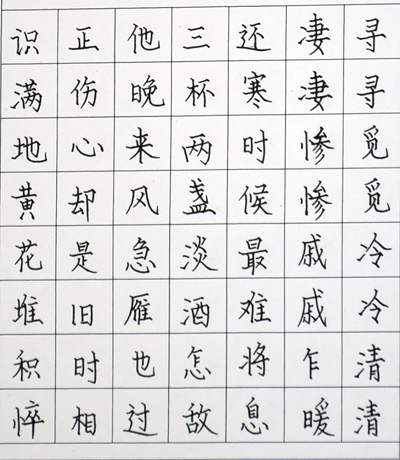 寻寻觅觅冷冷清清
凄凄惨惨戚戚乍暖
还寒时候最难将息
三杯两盏淡酒怎敌
他晚来风急雁也过
正伤心却是旧时相
识满地黄花堆积悴